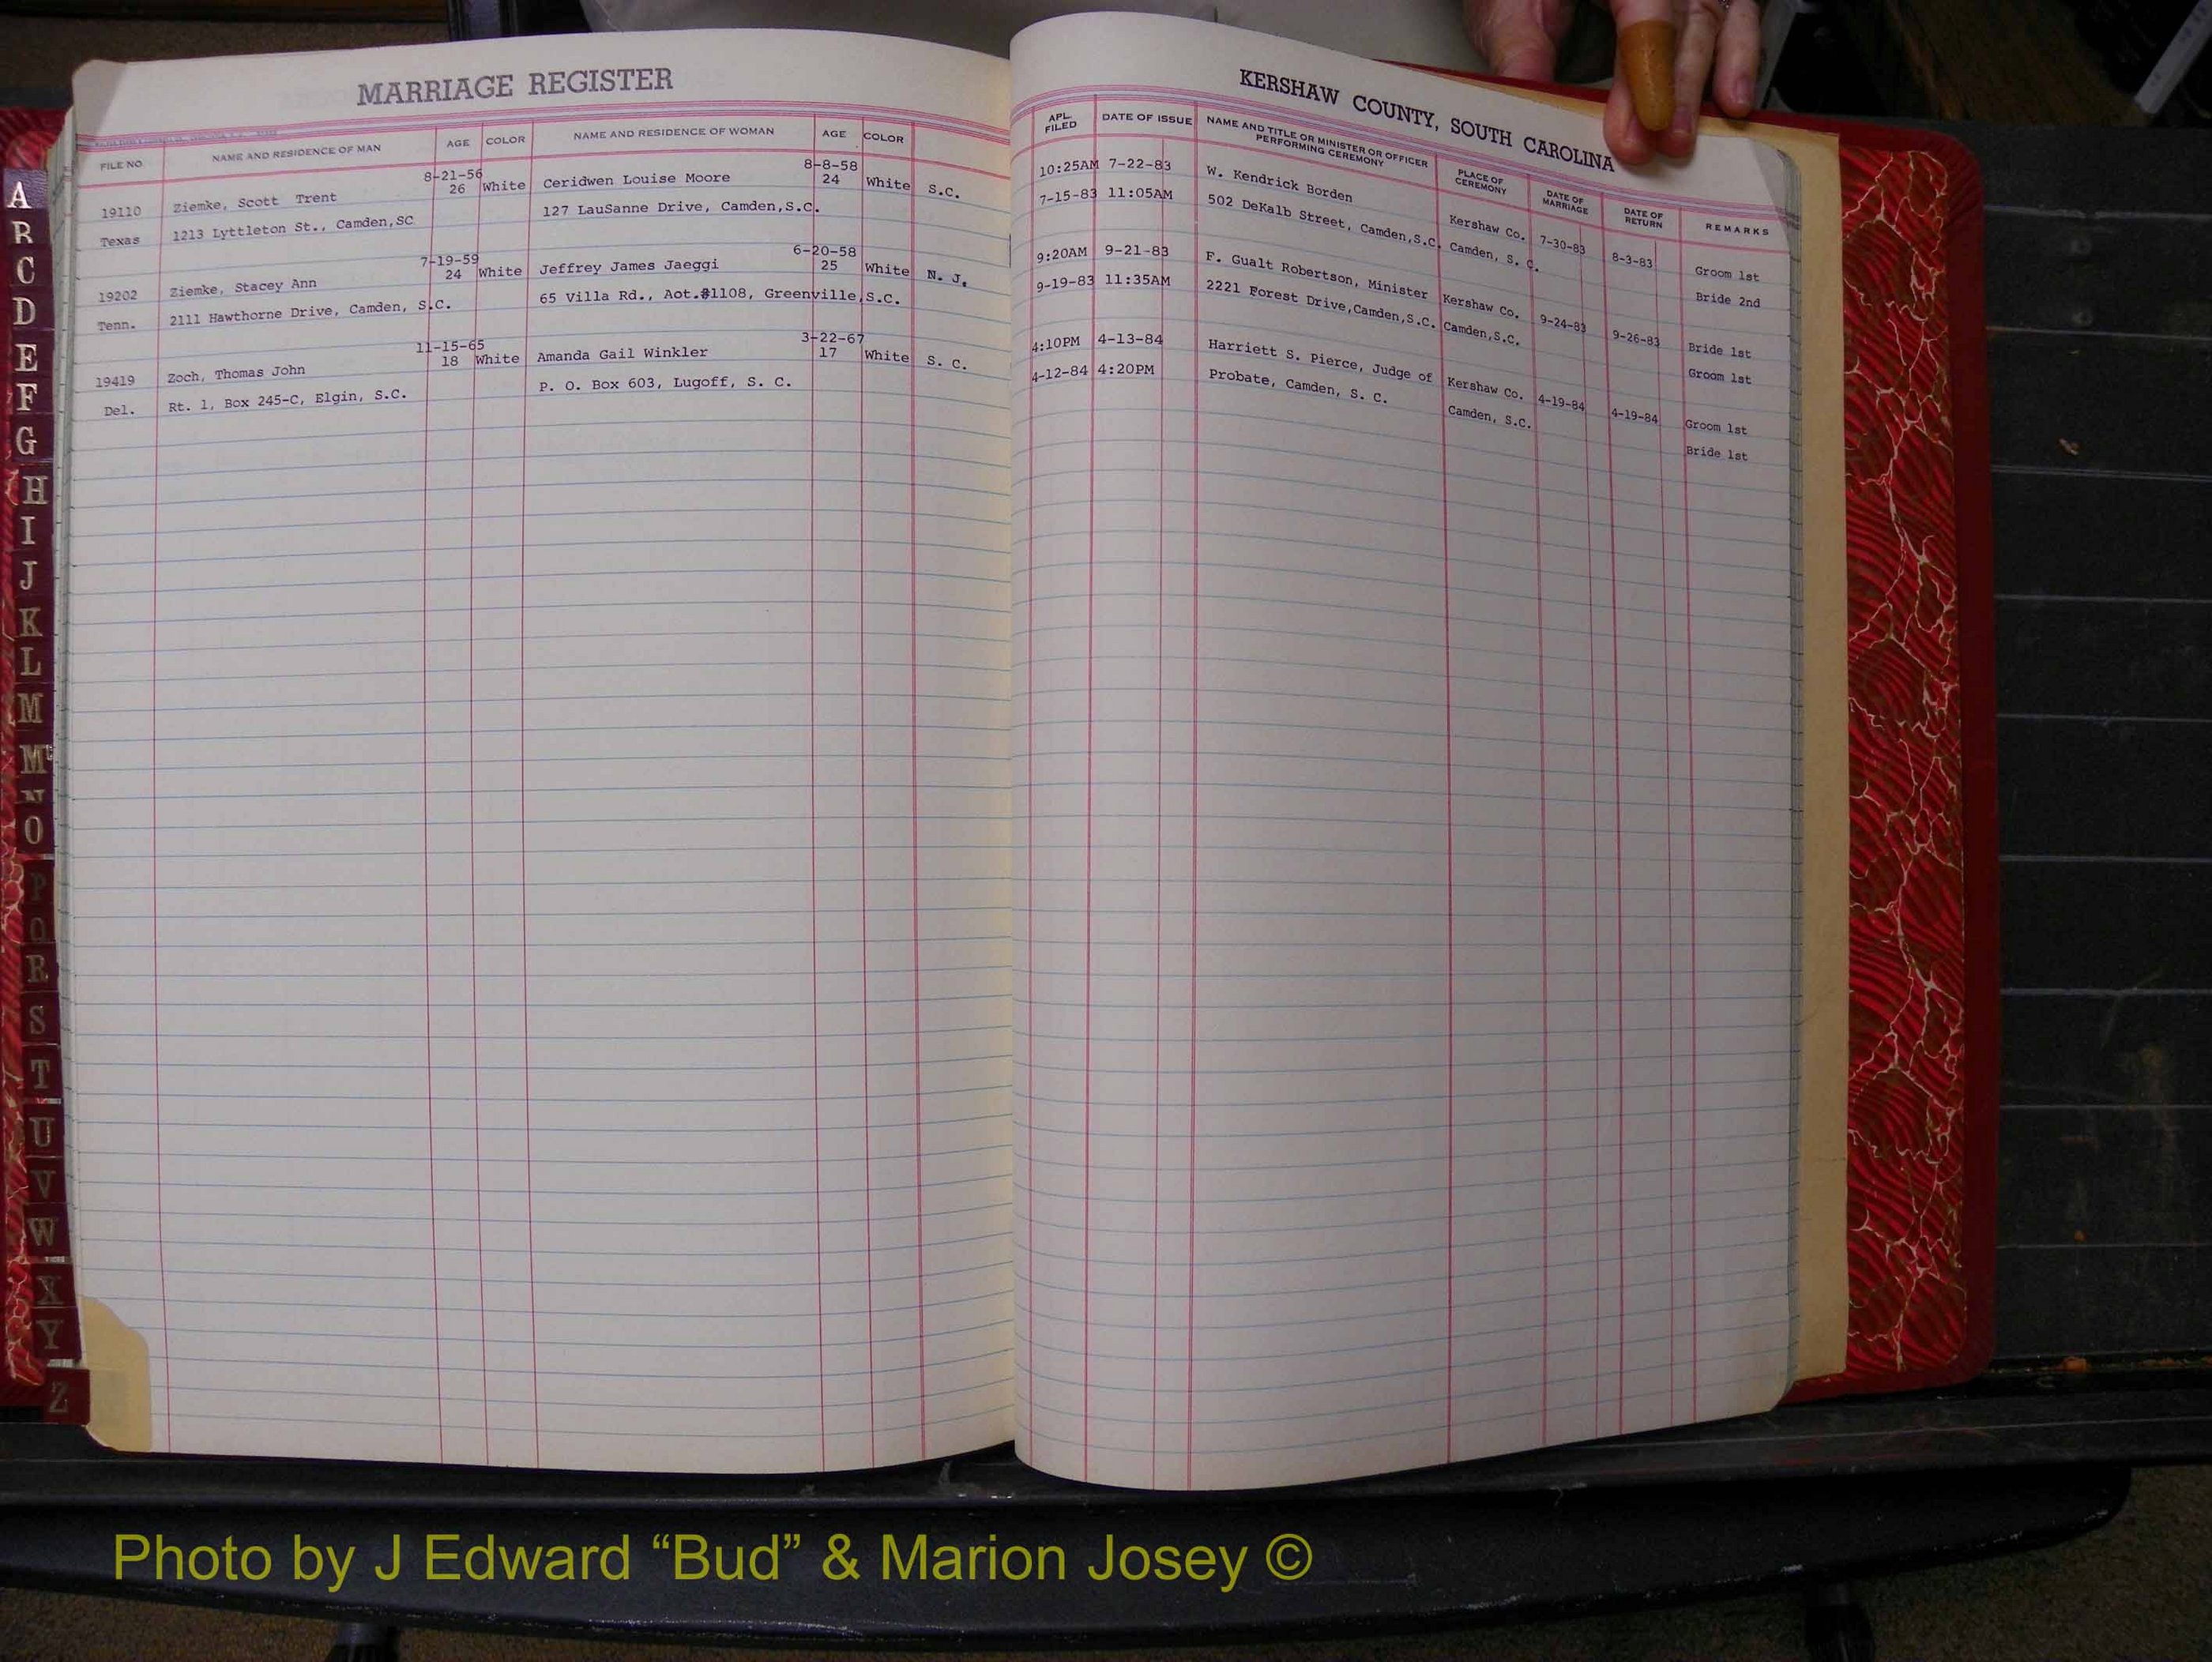 MARRIAGE REGISTER
FILE NO. NAME AND RESIDENCE OF MAN AGE COLOR NAME AND RESIDENCE OF WOMAN AGE COLOR
8-21-56 8-8-58
19110 Ziemke, Scott Trent 26 White Ceridwen Louise Moore 24 White S.C.
Texas 1213 Lyttleton St., Camden,SC 127 LauSanne Drive, Camden,S.C.
7-19-59 6-20-58
19202 Ziemke, Stacey Ann 24 White Jeffrey James Jaeggi 25 White N. J.
Tenn. 2111 Hawthorne Drive, Camden, S.C. 65 Villa Rd., Aot.#1108, Greenville,S.C.
11-15-65 3-22-67
19419 Zoch, Thomas John 18 White Amanda Gail Winkler 17 White S. C.
Del. Rt. 1, Box 245-C, Elgin, S.C. P. O. Box 603, Lugoff, S. C.
KERSHAW COUNTY, SOUTH CAROLINA
APL. FILED DATE OF ISSUE NAME AND TITLE OR MINISTER OR OFFICER PERFORMING CEREMONY PLACE OF CEREMONY DATE OF MARRIAGE DATE OF RETURN REMARKS
10:25AM 7-22-83 W. Kendrick Borden Kershaw Co. 7-30-83 8-3-83 Groom 1st
7-15-83 11:05AM 502 DeKalb Street, Camden,S.C. Camden, S. C. Bride 2nd
9:20AM 9-21-83 F. Gualt Robertson, Minister Kershaw Co. 9-24-83 9-26-83 Bride 1st
9-19-83 11:35AM 2221 Forest Drive,Camden,S.C. Camden,S.C. Groom 1st
4:10PM 4-13-84 Harriett S. Pierce, Judge of Kershaw Co. 4-19-84 4-19-84 Groom 1st
4-12-84 4:20PM Probate, Camden, S. C. Camden, S.C. Bride 1st
A
B
C
D
E
F
G
H
I
J
K
L
M
Mc
N
O
P
Q
R
S
T
U
V
W
X
Y
Z
Photo by J Edward “Bud” & Marion Josey ©